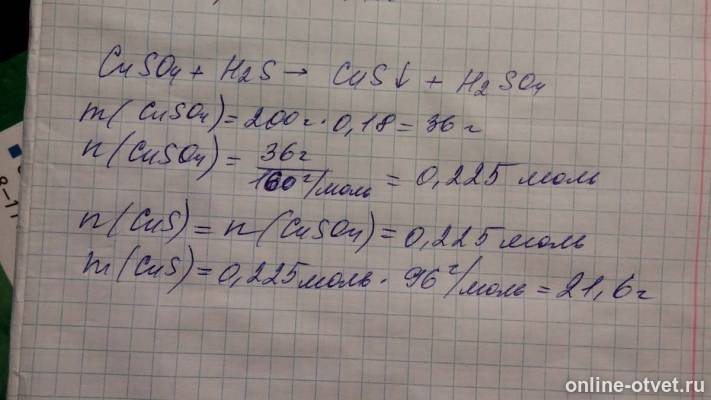 CuSO4 + H2S → CuS↓ + H2SO4
m(CuSO4) = 200г · 0,18 = 36 г
n(CuSO4) = 36г / 160 г/моль = 0,225 моль
n(CuS) = n(CuSO4) = 0,225 моль
m(CuS) = 0,225 моль · 96 г/моль = 21,6 г
8–11
online-otvet.ru